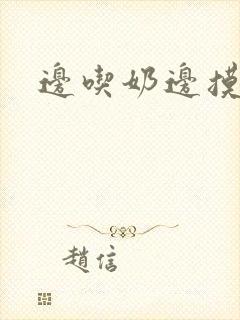 邊喫奶邊摸
趙信